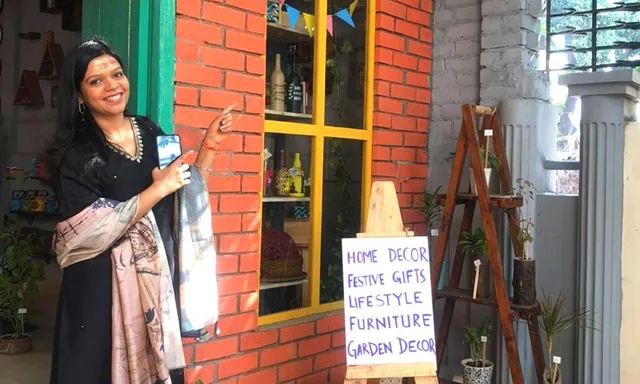 HOME DECOR
FESTIVE GIFTS
LIFESTYLE
FURNITURE
GARDEN DECOR